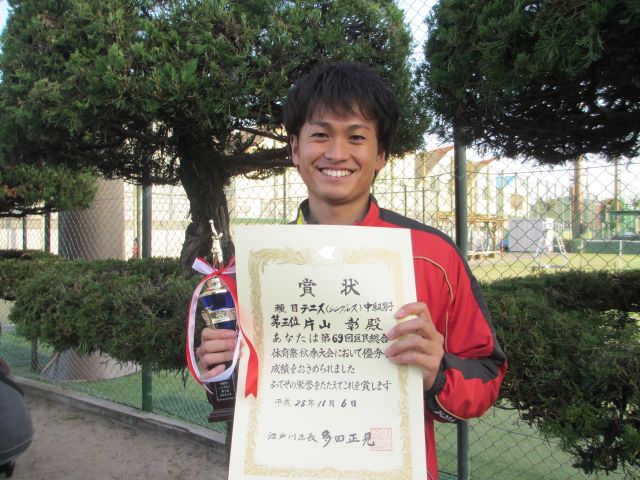 賞状
種目テニス(シングルス)中級男子
第三位 片山 彰 殿
あなたは第69回区民総合
体育祭秋季大会において優秀な
成績をおさめられました
よってその栄誉をたたえてこれを賞します
平成 28年 11月 6日
江戸川区長 多田正見